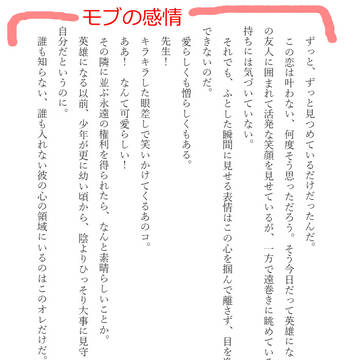 モブの感情
ずっと、ずっと見つめているだけだったんだ。
この恋は叶わない、何度そう思っただろう。そう今日だって英雄にな
の友人に囲まれて活発な笑顔を見せているが、一方で遠巻きに眺めている
持ちには気づいていない。
それでも、ふとした瞬間に見せる表情はこの心を掴んで離さず、目を
できないのだ。
愛らしくも憎らしくもある。
先生！
キラキラした眼差しで笑いかけてくるあのコ。
ああ！　なんて可愛らしい！
その隣に並ぶ永遠の権利を得られたら、なんと素晴らしいことか。
英雄になる以前、少年が更に幼い頃から、陰よりひっそり大事に見守
自分だというのに。
誰も知らない、誰も入れない彼の心の領域にいるのはこのオレだけだ。